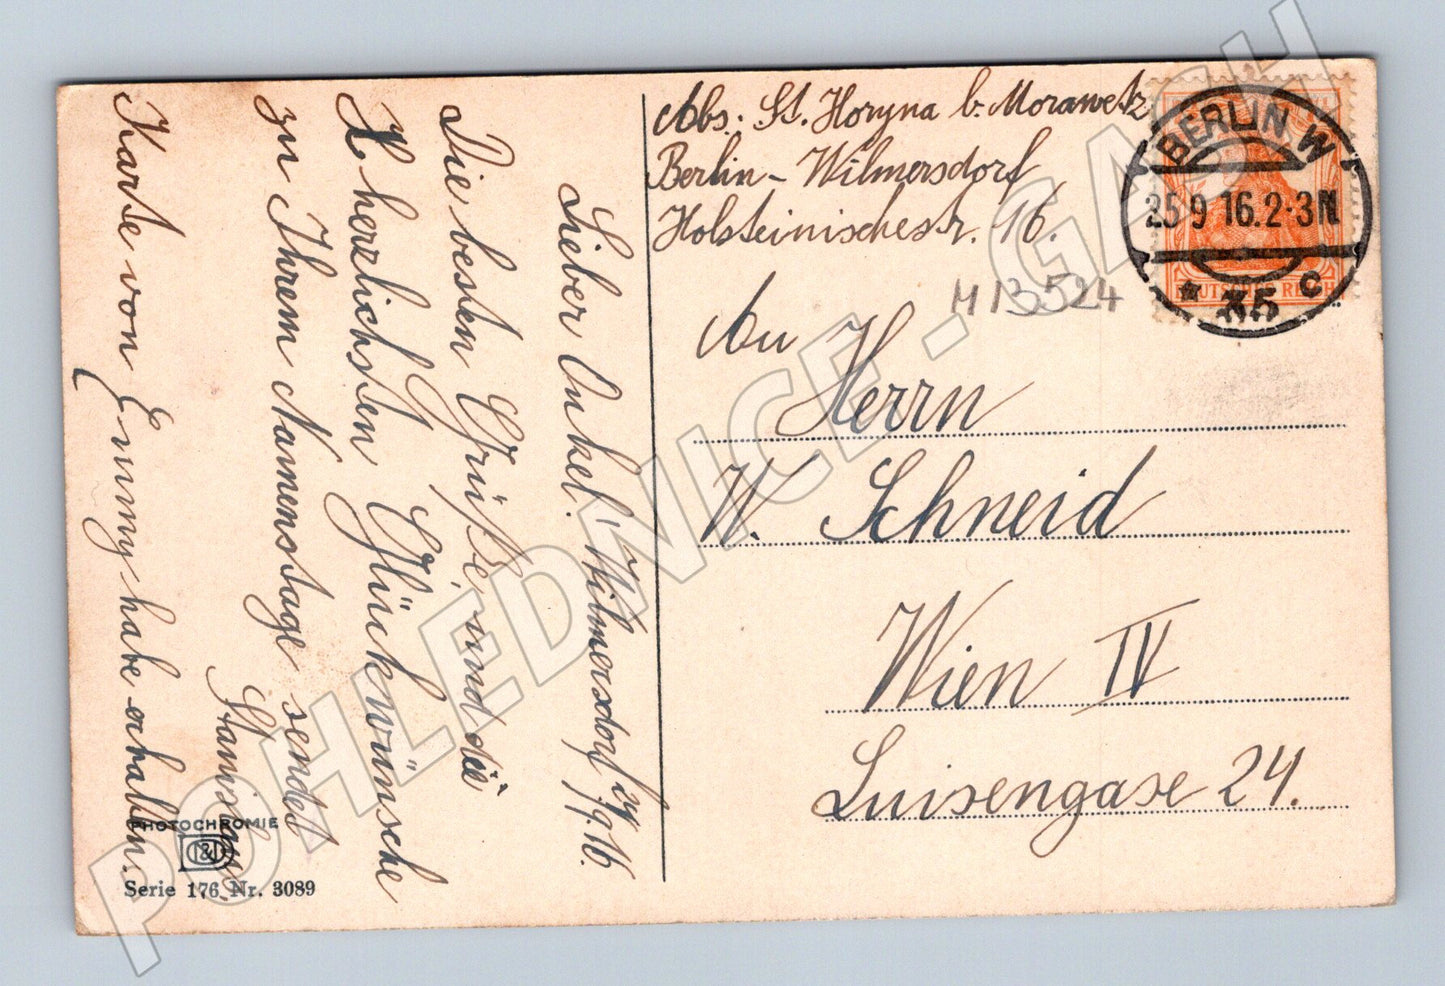 Abs. St. Horyna b. Morawetz
Berlin - Wilmersdorf
Holsteinischestr. 16.
M 13524
BERLIN W
25.9 16.2-3N.
* 35 c
DEUTSCHES REICH
An
Herrn
W. Schneid
Wien IV
Luisengase 24.
Wilmersdorf 24/9.16.
Lieber Onkel!
Die besten Grüße und die
herzlichsten Glückwünsche
zu Ihrem Namenstage sendet
Stanislaus
Karte von Emmy habe erhalten.
PHOTOCHROMIE
Serie 176 Nr. 3089
POHLEDNICE - GASH